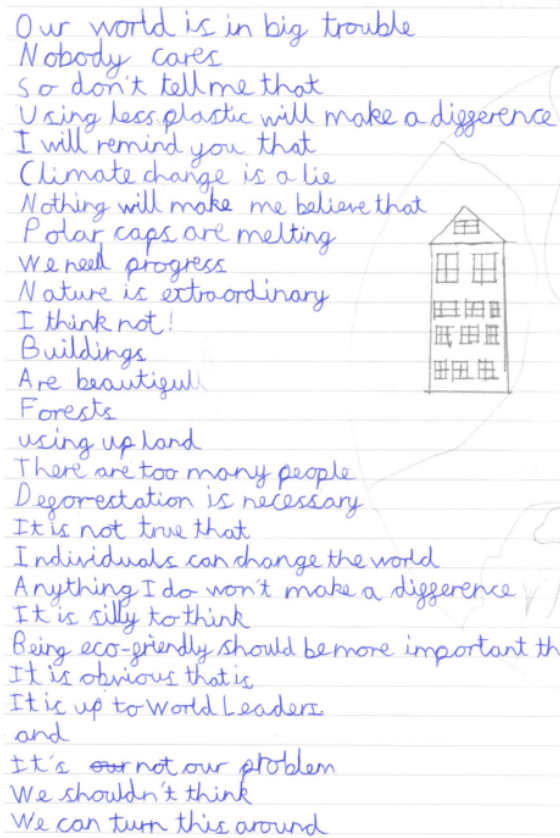 Our world is in big trouble
Nobody cares
So don't tell me that
Using less plastic will make a difference
I will remind you that
Climate change is a lie
Nothing will make me believe that
Polar caps are melting
We need progress
Nature is extraordinary
I think not!
Buildings
Are beautifull
Forests
using up land
There are too many people
Deforestation is necessary
It is not true that
Individuals can change the world
Anything I do won't make a difference
It is silly to think
Being eco-friendly should be more important th
It is obvious that is
It is up to World Leaders
and
It's our not our problem
We shouldn't think
We can turn this around